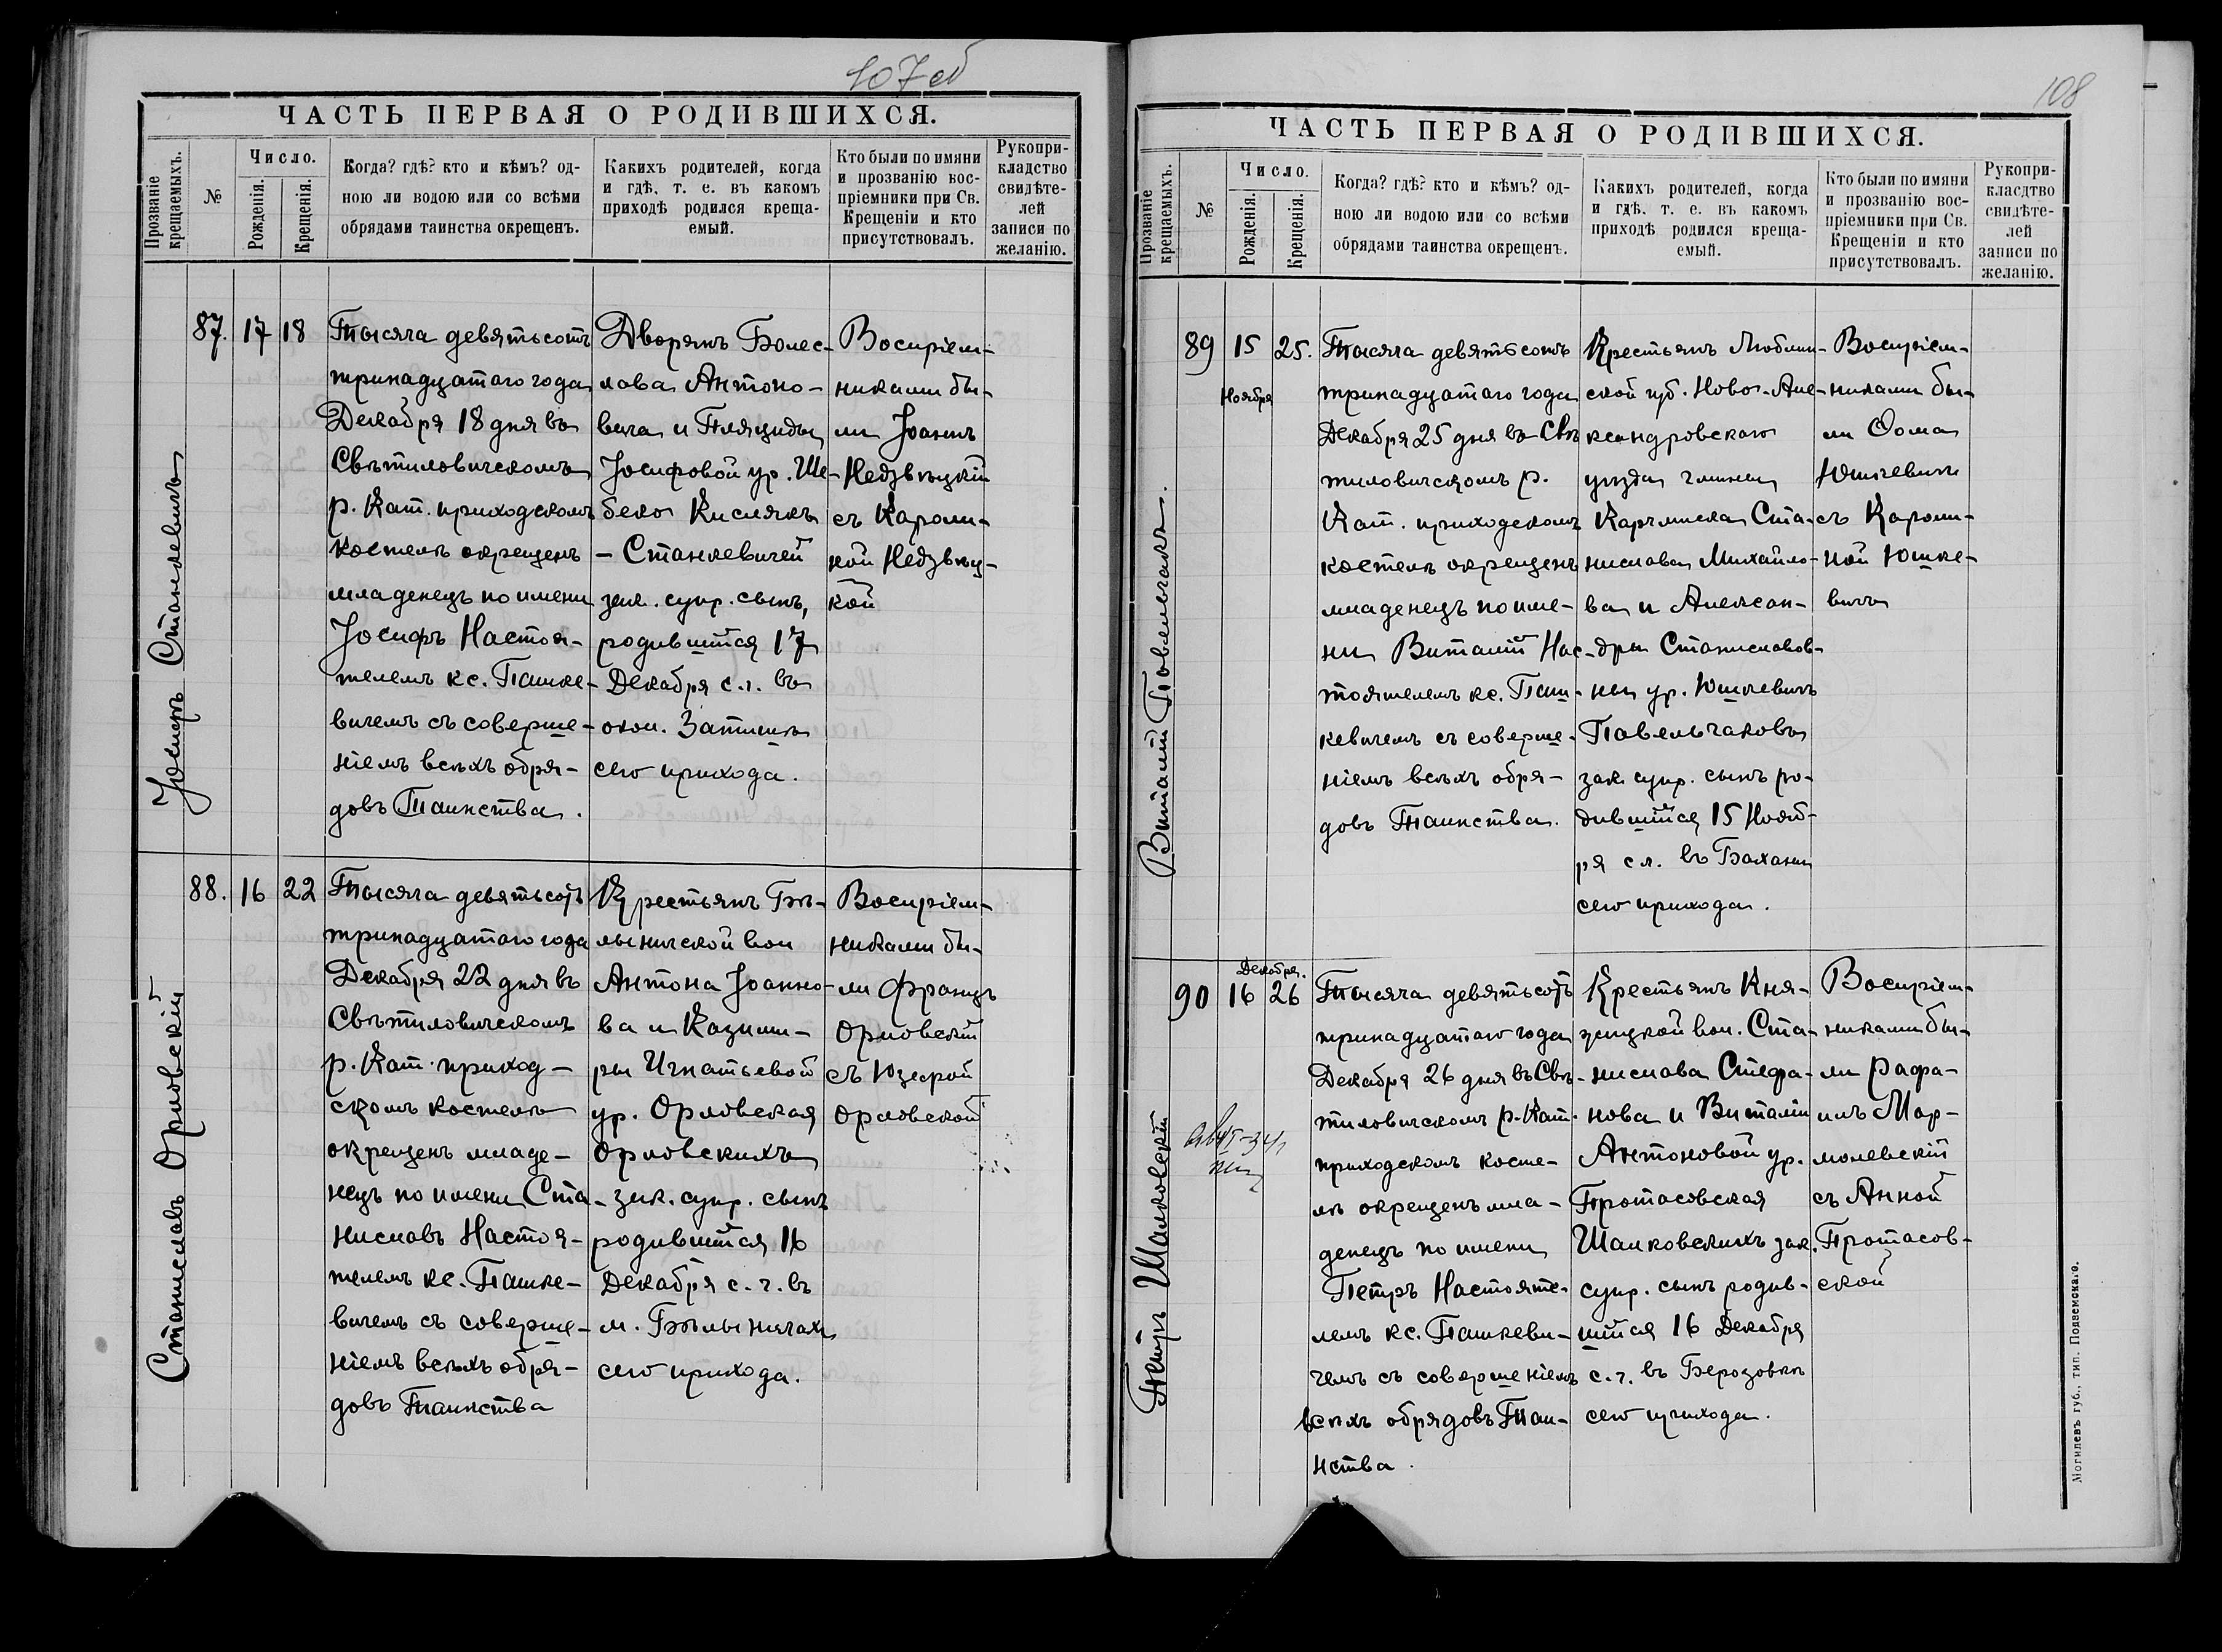 107 об
ЧАСТЬ ПЕРВАЯ О РОДИВШИХСЯ.
Прозваніе крещаемыхъ.
№
Число.
Рожденія.
Крещенія.
Когда? гдѣ? кто и кѣмъ? од-
ною ли водою или со всѣми
обрядами таинства окрещенъ.
Какихъ родителей, когда
и гдѣ, т. е. въ какомъ
приходѣ родился креща-
емый.
Кто были по имяни
и прозванію вос-
пріемники при Св.
Крещеніи и кто
присутствовалъ.
Рукопри-
кладство
свидѣте-
лей
записи по
желанію.
Іосифъ Станкевичъ
87. 17 18
Тысяча девятьсотъ
тринадцатаго года
Декабря 18 дня въ
Свѣтиловическомъ
р. Кат. приходскомъ
костелѣ окрещенъ
младенецъ по имени
Іосифъ Настоя-
телемъ кс. Пашке-
вичемъ съ соверше-
ніемъ всѣхъ обря-
довъ Таинства.
Дворянъ Болес-
лава Антоно-
вича и Пляциды
Іосифовой ур. Ше-
беко Кислякъ
- Станкевичей
зак. супр. сынъ,
родившійся 17
Декабря с.г. въ
окол. Затишье
сего прихода.
Воспріем-
никами бы-
ли Іоаннъ
Недзвѣцкій
съ Кароли-
ной Недзвѣц-
кой
Станиславъ Орловскій
88. 16 22
Тысяча девятьсотъ
тринадцатаго года
Декабря 22 дня въ
Свѣтиловическомъ
р. Кат. приход-
скомъ костелѣ
окрещенъ младе-
нецъ по имени Ста-
ниславъ Настоя-
телемъ кс. Пашке-
вичемъ съ соверше-
ніемъ всѣхъ обря-
довъ Таинства
Крестьянъ Бѣ-
лыничской вол
Антона Іоанно-
ва и Казими-
ры Игнатьевой
ур. Орловская
Орловскихъ
зак. супр. сынъ
родившійся 16
Декабря с. г. въ
м. Бѣлыничахъ
сего прихода.
Воспріем-
никами бы-
ли Францъ
Орловскій
съ Юзефой
Орловской
108
ЧАСТЬ ПЕРВАЯ О РОДИВШИХСЯ.
Прозваніе крещаемыхъ.
№
Число.
Рожденія.
Крещенія.
Когда? гдѣ? кто и кѣмъ? од-
ною ли водою или со всѣми
обрядами таинства окрещенъ.
Какихъ родителей, когда
и гдѣ, т. е. въ какомъ
приходѣ родился креща-
емый.
Кто были по имяни
и прозванію вос-
пріемники при Св.
Крещеніи и кто
присутствовалъ.
Рукопри-
кладство
свидѣте-
лей
записи по
желанію.
Виталій Павельчакъ.
89 15 25.
Ноября
Тысяча девятьсотъ
тринадцатаго года
Декабря 25 дня въ Свѣ
тиловическомъ р.
Кат. приходскомъ
костелѣ окрещенъ
младенецъ по име-
ни Виталій Нас-
тоятелемъ кс. Паш-
кевичемъ съ соверше-
ніемъ всѣхъ обря-
довъ Таинства.
Крестьянъ Люблин-
ской губ. Ново-Але-
ксандровскаго
уѣзда гмины
Карчмиска Ста-
нислава Михайло-
ва и Алексан-
дры Станиславов-
ны ур. Юшкевичъ
Павельчаковъ
зак. супр. сынъ ро-
дившійся 15 Нояб-
ря с.г. въ Бахани
сего прихода.
Воспріем-
никами бы-
ли Ѳома
Юшкевичъ
съ Кароли-
ной Юшке-
вичъ
Петръ Шалковскій
Декабря.
90 16 26
Тысяча девятьсотъ
тринадцатаго года
Декабря 26 дня въ Свѣ-
тиловическомъ р.-Кат.
приходскомъ косте-
лѣ окрещенъ мла-
денецъ по имени
Петръ Настояте-
лемъ кс. Пашкеви-
чемъ съ совершеніемъ
всѣхъ обрядовъ Таи-
нства.
Крестьянъ Кня-
зицкой вол. Ста-
нислава Стефа-
нова и Виталіи
Антоновой ур.
Протасовская
Шалковскихъ зак.
супр. сынъ родив-
шійся 16 Декабря
с.г. въ Берозовкѣ
сего прихода.
Воспріем-
никами бы-
ли Рафа-
илъ Мар-
молевскій
съ Анной
Протасов-
ской
Могилевъ губ., тип. Подземскаго.